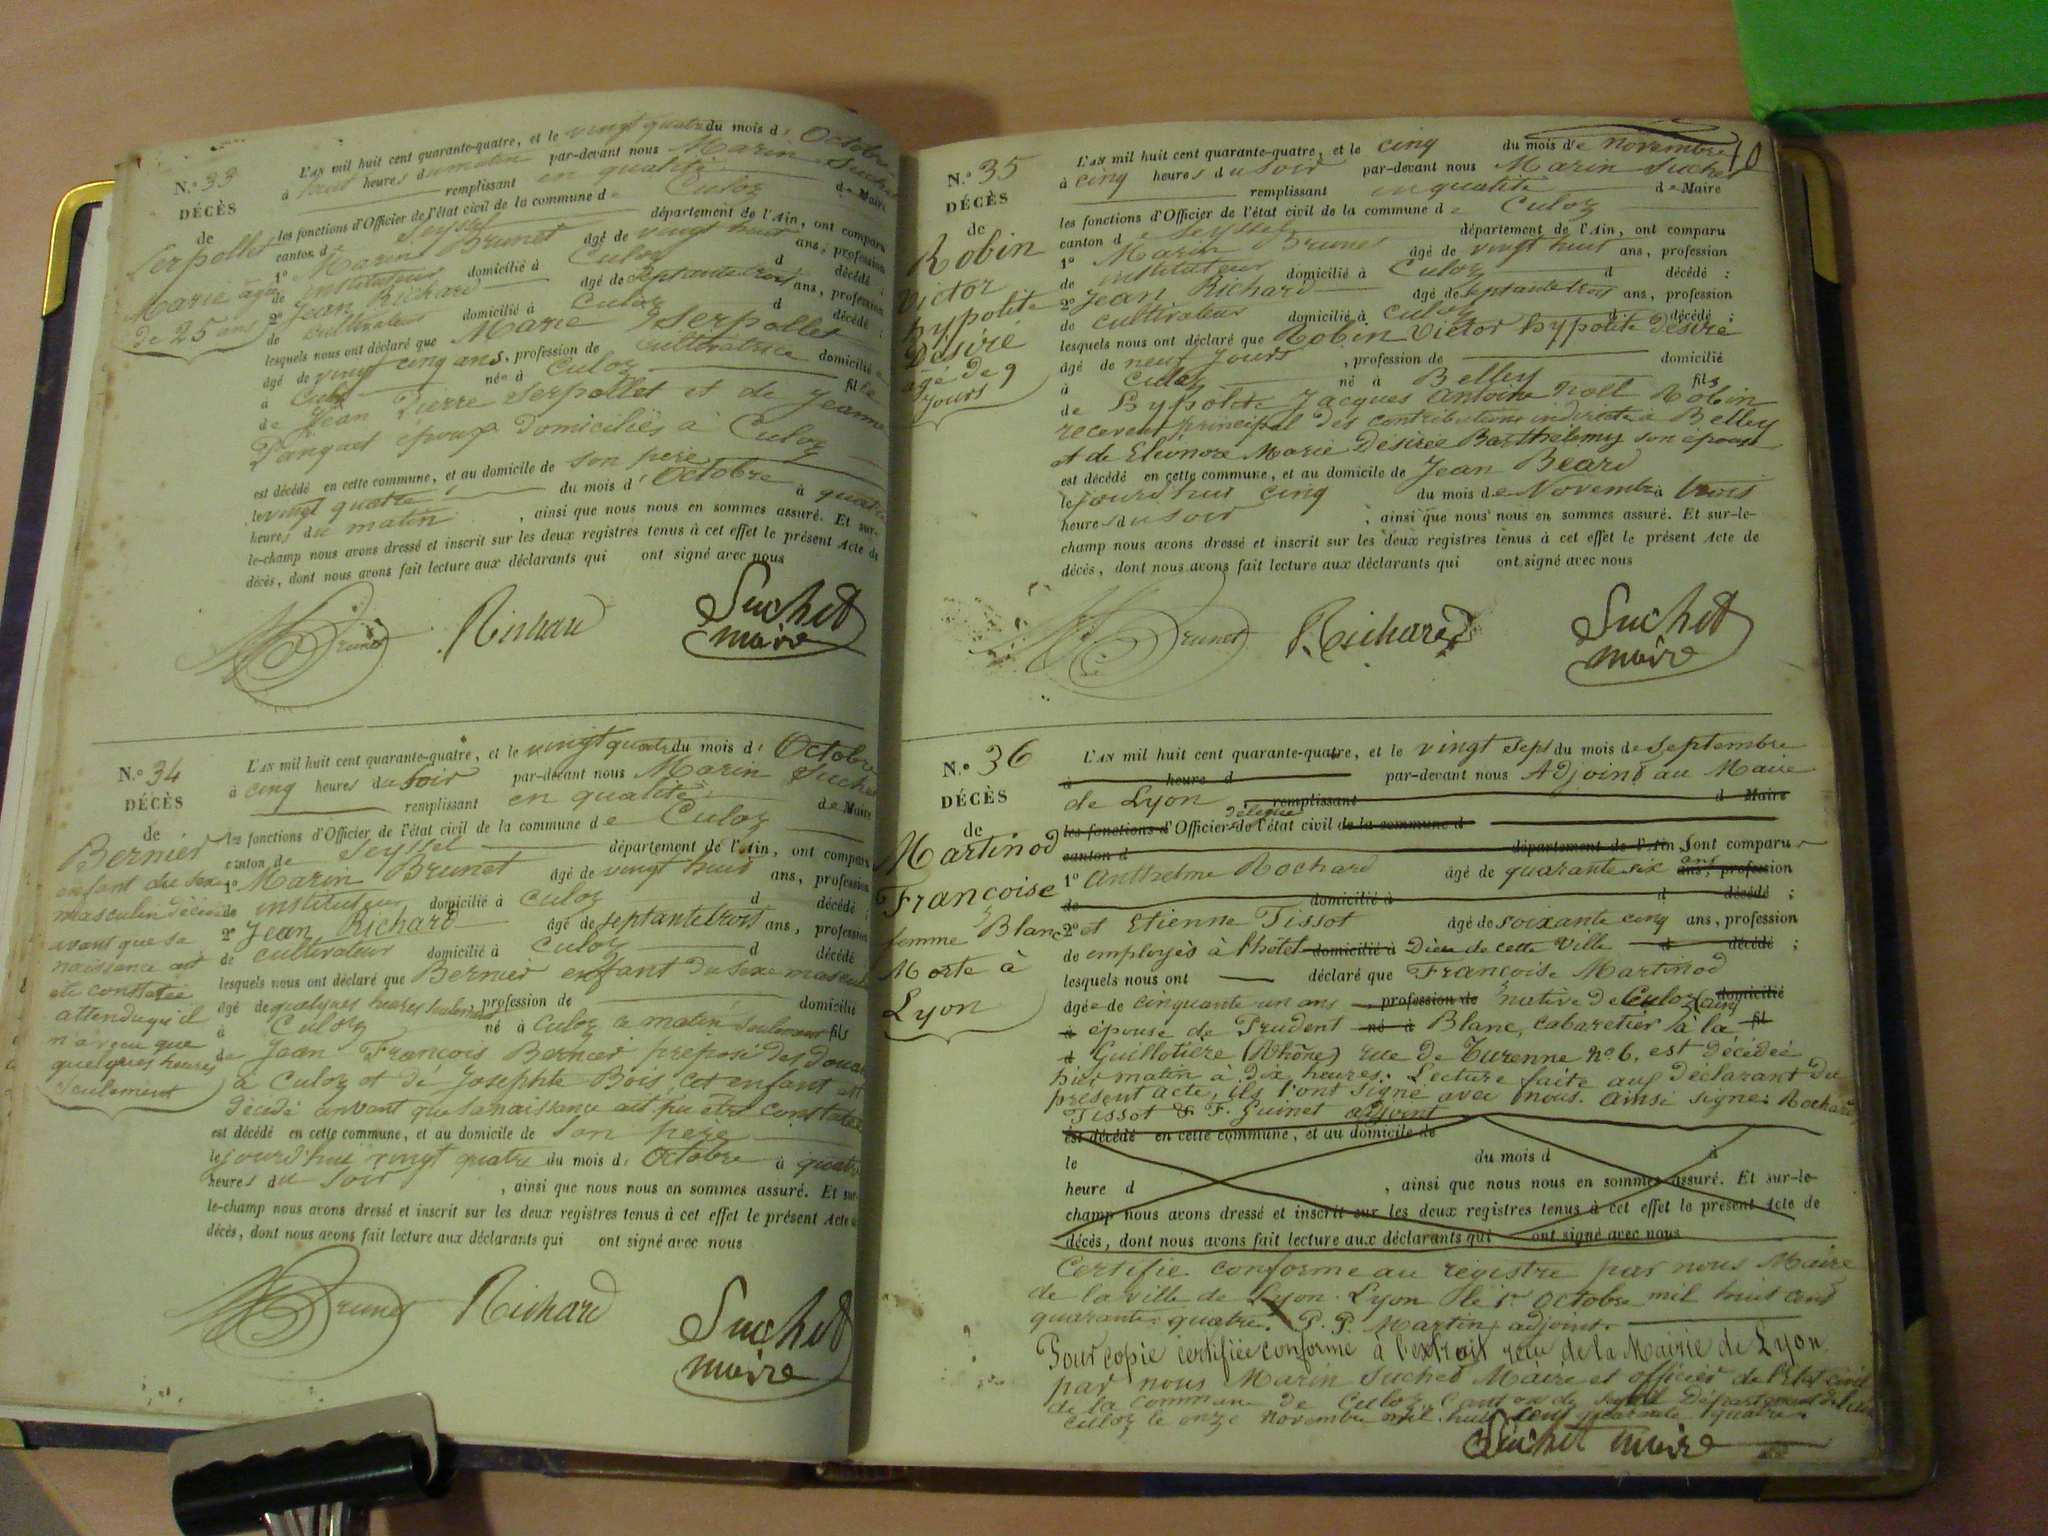 N.o 33
DÉCÈS
de
Serpollet
Marie agée
de 25 ans
L'AN mil huit cent quarante-quatre, et le vingt quatre du mois d' Octobre
à huit heures du matin par-devant nous Marin Suchet
remplissant en qualité de Maire
les fonctions d'Officier de l'état civil de la commune de Culoz
canton de Seyssel département de l'Ain, ont comparu
1o Marin Brunet âgé de vingt huit ans, profession
de instituteur domicilié à Culoz d décédé ;
2o Jean Richard âgé de septante trois ans, profession
de cultivateur domicilié à Culoz d décédé ;
lesquels nous ont déclaré que Marie Serpollet
âgé de vingt cinq ans, profession de cultivatrice domicilié
à Culoz née à Culoz fille
de Jean Pierre Serpollet et de Jeanne
Panquet époux domiciliés à Culoz
est décédé en cette commune, et au domicile de son père
le vingt quatre du mois d' Octobre à quatre
heures du matin , ainsi que nous nous en sommes assuré. Et sur-
le-champ nous avons dressé et inscrit sur les deux registres tenus à cet effet le présent Acte de
décès, dont nous avons fait lecture aux déclarants qui ont signé avec nous
Brunet Richard Suchet
maire
N.o 34
DÉCÈS
de
Bernier
enfant du sexe
masculin décédé
avant que sa
naissance ait
été constatée
attendu qu'il
n'a vécu que
quelques heures
seulement
L'AN mil huit cent quarante-quatre, et le vingt quatre du mois d' Octobre
à cinq heures du soir par-devant nous Marin Suchet
remplissant en qualité de Maire
les fonctions d'Officier de l'état civil de la commune de Culoz
canton de Seyssel département de l'Ain, ont comparu
1o Marin Brunet âgé de vingt huit ans, profession
de instituteur domicilié à Culoz d décédé ;
2o Jean Richard âgé de septante trois ans, profession
de cultivateur domicilié à Culoz d décédé
lesquels nous ont déclaré que Bernier enfant du sexe masculin
âgé de quelques heures seulement, profession de domicilié
à Culoz né à Culoz ce matin seulement fils
de Jean François Bernier préposé des douanes
à Culoz et de Josephte Bois, cet enfant est
décédé avant que sa naissance ait pu être constatée
est décédé en cette commune, et au domicile de son père
le jourd'hui vingt quatre du mois d' Octobre à quatre
heures du soir , ainsi que nous nous en sommes assuré. Et sur-
le-champ nous avons dressé et inscrit sur les deux registres tenus à cet effet le présent Acte de
décès, dont nous avons fait lecture aux déclarants qui ont signé avec nous
Brunet Richard Suchet
maire
10
N.o 35
DÉCÈS
de
Robin
Victor
hypolite
Désiré
agé de 9
jours
L'AN mil huit cent quarante-quatre, et le cinq du mois de novembre
à cinq heures du soir par-devant nous Marin Suchet
remplissant en qualité de Maire
les fonctions d'Officier de l'état civil de la commune de Culoz
canton de Seyssel département de l'Ain, ont comparu
1o Marin Brunet âgé de vingt huit ans, profession
de instituteur domicilié à Culoz d décédé ;
2o Jean Richard âgé de septante trois ans, profession
de cultivateur domicilié à Culoz d décédé ;
lesquels nous ont déclaré que Robin Victor hypolite Désiré
âgé de neuf jours , profession de domicilié
à Culoz né à Belley fils
de hypolite Jacques Antoine noël Robin
receveur principal des contributions indirectes à Belley
et de Eléonore Marie Désirée Barthélemy son épouse
est décédé en cette commune, et au domicile de Jean Béard
le jourd'hui cinq du mois de Novembre à trois
heures du soir , ainsi que nous nous en sommes assuré. Et sur-le-
champ nous avons dressé et inscrit sur les deux registres tenus à cet effet le présent Acte de
décès, dont nous avons fait lecture aux déclarants qui ont signé avec nous
Brunet Richard Suchet
maire
N.o 36
DÉCÈS
de
Martinod
Françoise
femme Blanc
Morte à
Lyon
L'AN mil huit cent quarante-quatre, et le vingt sept du mois de septembre
à heure d par-devant nous Adjoint au Maire
de Lyon , remplissant d Maire
les fonctions d'Officier délégué de l'état civil de la commune d
canton d département de l'Ain, sont comparus
1o Anthelme Rochard âgé de quarante six ans ans, profession
de domicilié à d décédé ;
2o et Etienne Tissot âgé de soixante cinq ans, profession
de employés à l'hôtel domicilié à Dieu de cette ville d décédé ;
lesquels nous ont déclaré que Françoise Martinod
âgée de cinquante un ans profession de native de Culoz (ain) domicilié
à épouse de Prudent né à Blanc, cabaretier à la fil
d Guillotière (Rhône) rue de Turenne no 6, est décédée
hier matin à dix heures. Lecture faite aux déclarant du
présent acte, ils l'ont signé avec nous. Ainsi signé: Rochard
Tissot & F. Guinet adjoint
est décédé en cette commune, et au domicile de
le du mois d à
heure d , ainsi que nous nous en sommes assuré. Et sur-le-
champ nous avons dressé et inscrit sur les deux registres tenus à cet effet le présent Acte de
décès, dont nous avons fait lecture aux déclarants qui ont signé avec nous
Certifié conforme au registre par nous Maire
de la ville de Lyon. Lyon le 1er Octobre mil huit cent
quarante quatre. P. P. Martin adjoint.
Pour copie certifiée conforme à l'extrait reçu de la Mairie de Lyon
par nous Marin Suchet Maire et officier de l'Etat civil
de la Commune de Culoz, Canton de Seyssel Département de l'ain
Culoz le onze novembre mil huit cent quarante quatre.
Suchet maire